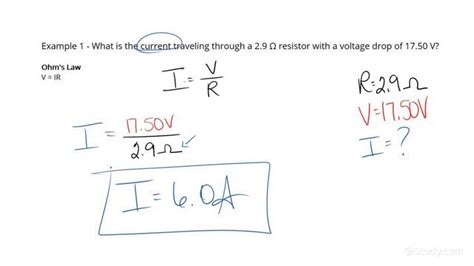 Example 1 - What is the current traveling through a 2.9 Ω resistor with a voltage drop of 17.50 V?
Ohm's Law
V = IR
I = V/R
R=2.9Ω
V=17.50V
I=?
I = 17.50V/2.9Ω
I=6.0A
©Study.com